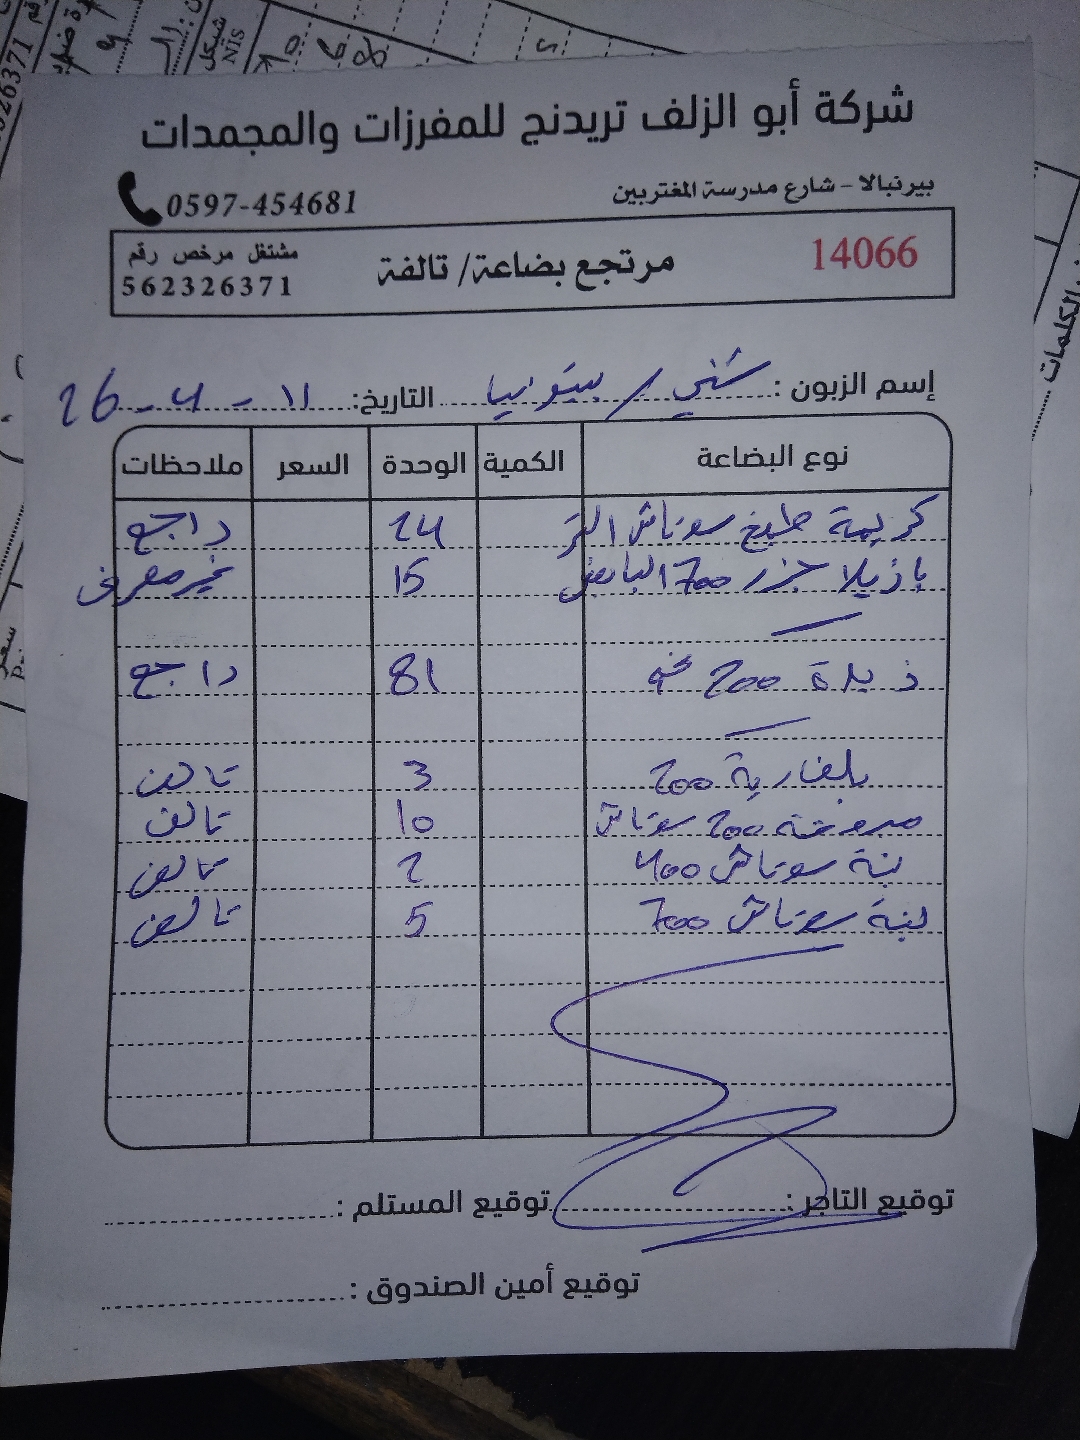 شركة أبو الزلف تريدنج للمفرزات والمجمدات
بيرنبالا - شارع مدرسة المغتربين
0597-454681
14066
مرتجع بضاعة/ تالفة
مشتغل مرخص رقم
562326371
إسم الزبون : شني / بيتونيا التاريخ: 11 - 4 - 26
نوع البضاعة الكمية الوحدة السعر ملاحظات
كريمة طبخ سوتاش 24 راجع
بازيلا جزر 700 15 غير معرف
زبدة 200 81 راجع
بلغارية 200 3 تالف
200 سوتاش 10 تالف
لبنة سوتاش 400 2 تالف
لبنة سوتاش 700 5 تالف
توقيع التاجر : توقيع المستلم :
توقيع أمين الصندوق :
26371
شيكل
NIS
الكلمات
سعر